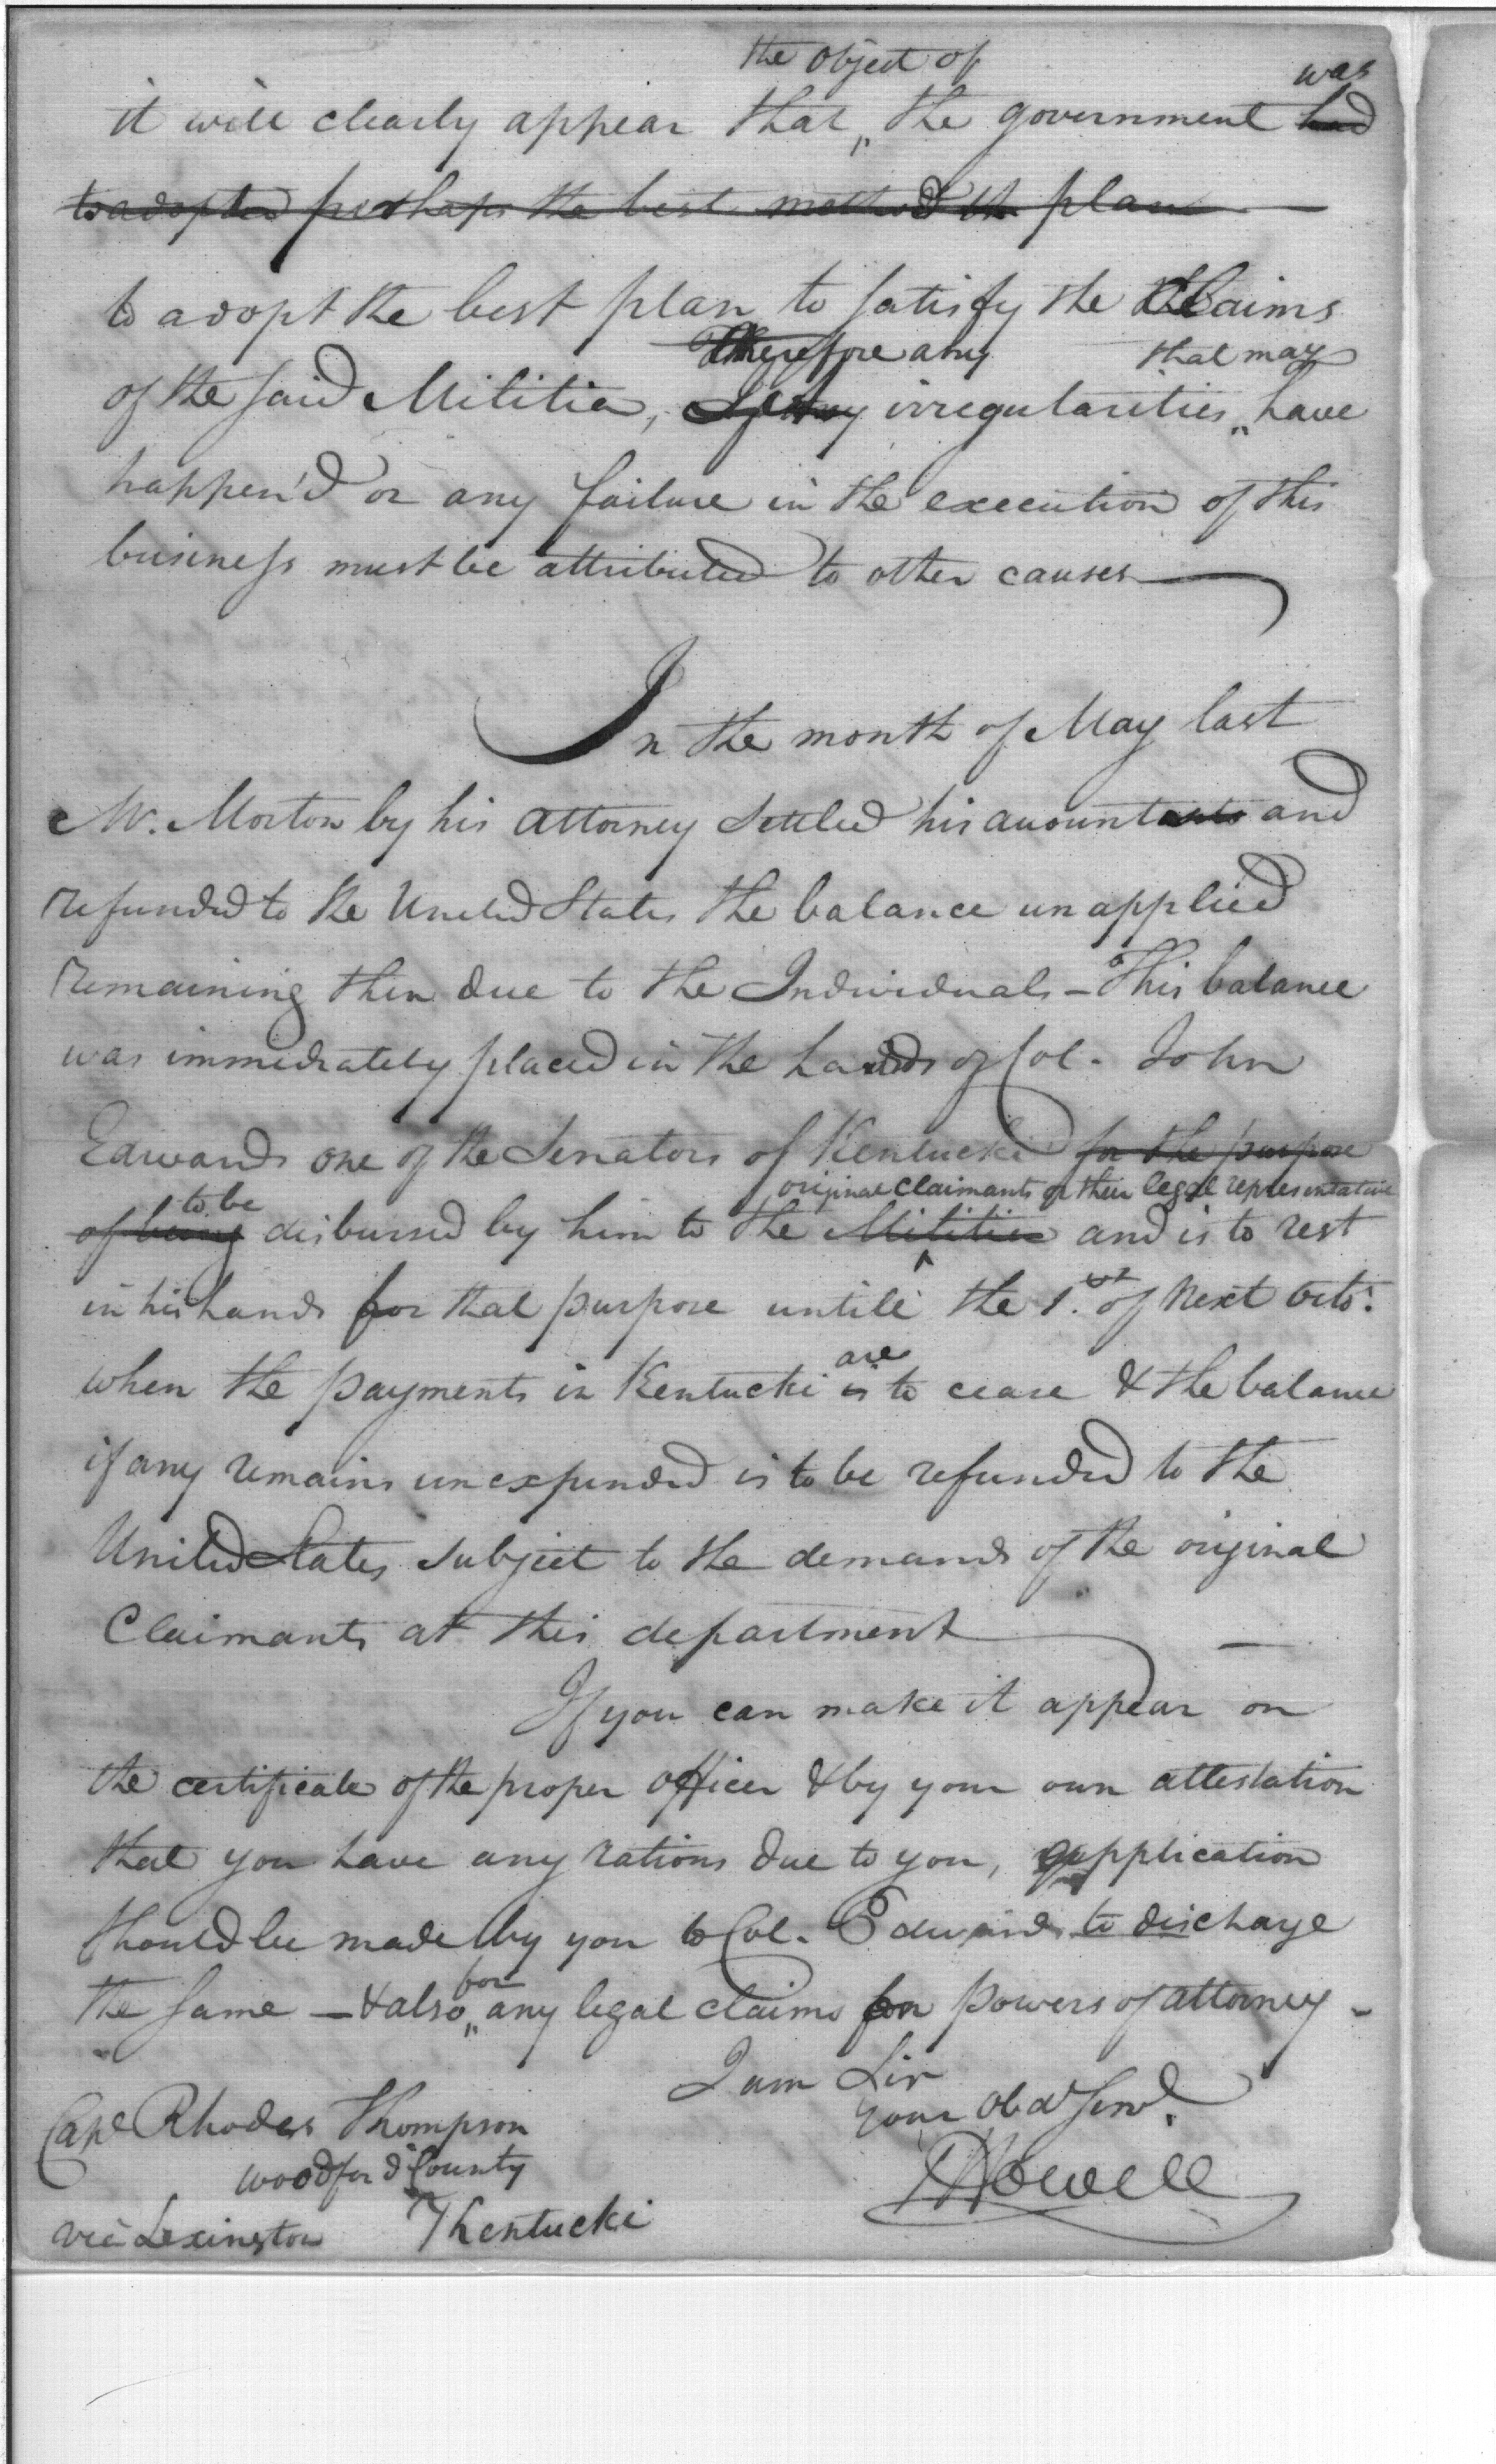 the object of was
it will clearly appear that the government had
to adopted perhaps the best method the plan
to adopt the best plan to satisfy the Claims
Therefore any that may
of the said Militia, irregularities have
happen'd or any failure in the execution of this
business must be attributed to other causes
In the month of May last
Mr. Morton by his attorney settled his accountants and
refunded to the United States the balance unapplied
remaining then due to the Individuals - This balance
was immediately placed in the hands of Col. John
Edwards one of the Senators of Kentucki for the purpose
to be original claimants or their legal representative
of being disbursed by him to the Militia and is to rest
in his hands for that purpose untill the 1.st of next Octo:
are
when the payments in Kentucki is to cease & the balance
if any remains unexpended is to be refunded to the
United States subject to the demands of the original
Claimants at this department
If you can make it appear on
the certificate of the proper officer & by your own attestation
that you have any rations due to you, application
should be made by you to Col. Edwards to discharge
for
the same - & also any legal claims for powers of attorney -
I am Sir
your Obd Servt.
Capt Rhodes Thompson
Woodford County
via Lexington Kentucki
Howell